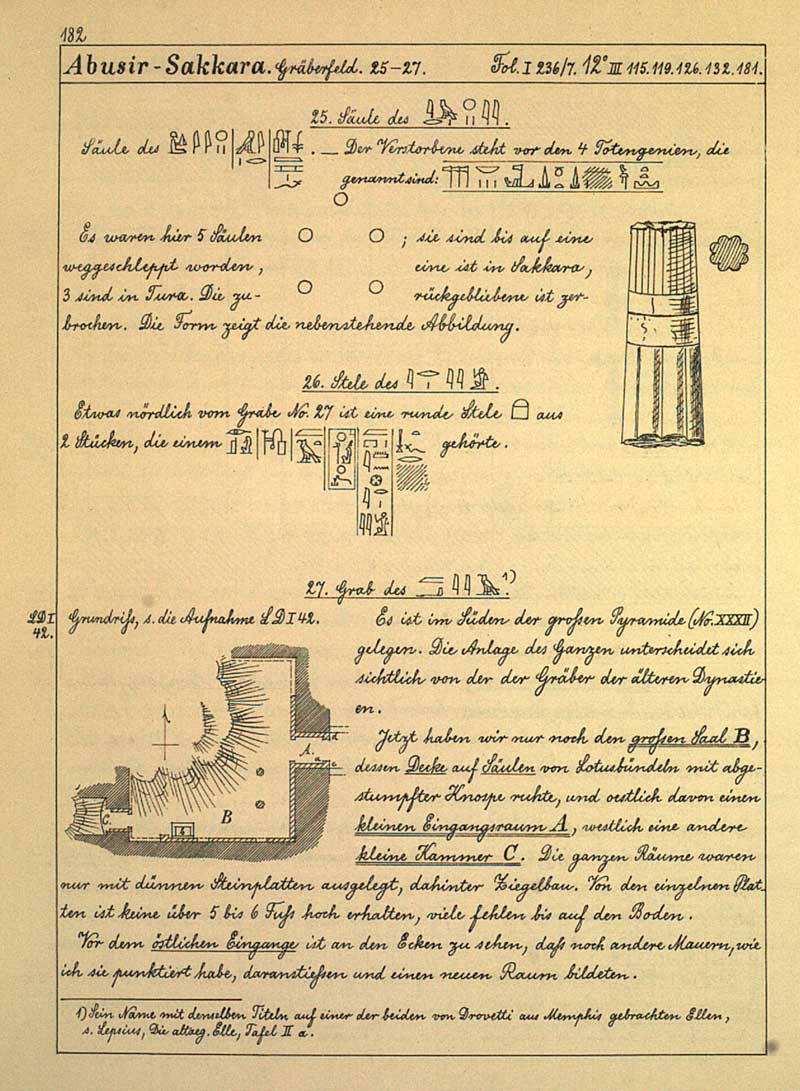 182
Abusir-Sakkara. Gräberfeld. 25-27. Fol. I 236/7. 12° III 115.119.126.132.181.
25. Säule des
Säule des . — Der Verstorbene steht vor den 4 Totengenien, die
genannt sind:
Es waren hier 5 Säulen ; sie sind bis auf eine
weggeschleppt worden, eine ist in Sakkara,
3 sind in Tura. Die zu- rückgebliebene ist zer-
brochen. Die Form zeigt die nebenstehende Abbildung.
26. Stele des .
Etwas nördlich vom Grabe No. 27 ist eine runde Stele aus
2 Stücken, die einem gehörte.
27. Grab des 1)
LDI
42.
Grundriſs, s. die Aufnahme LD I 42.
A.
B
C.
Es ist im Süden der groſsen Pyramide (No. XXXII)
gelegen. Die Anlage des Ganzen unterscheidet sich
sichtlich von der der Gräber der älteren Dynastie-
en.
Jetzt haben wir nur noch den groſsen Saal B,
dessen Decke auf Säulen von Lotusbündeln mit abge-
stumpfter Knospe ruhte, und oestlich davon einen
kleinen Eingangsraum A, westlich eine andere
kleine Kammer C. Die ganzen Räume waren
nur mit dünnen Steinplatten ausgelegt, dahinter Ziegelbau. Von den einzelnen Plat-
ten ist keine über 5 bis 6 Fuſs hoch erhalten, viele fehlen bis auf den Boden.
Vor dem östlichen Eingange ist an den Ecken zu sehen, daſs noch andere Mauern, wie
ich sie punktiert habe, daranstieſsen und einen neuen Raum bildeten.
1) Sein Name mit denselben Titeln auf einer der beiden von Drovetti aus Memphis gebrachten Ellen,
s. Lepsius, Die altaeg. Elle, Tafel II a.